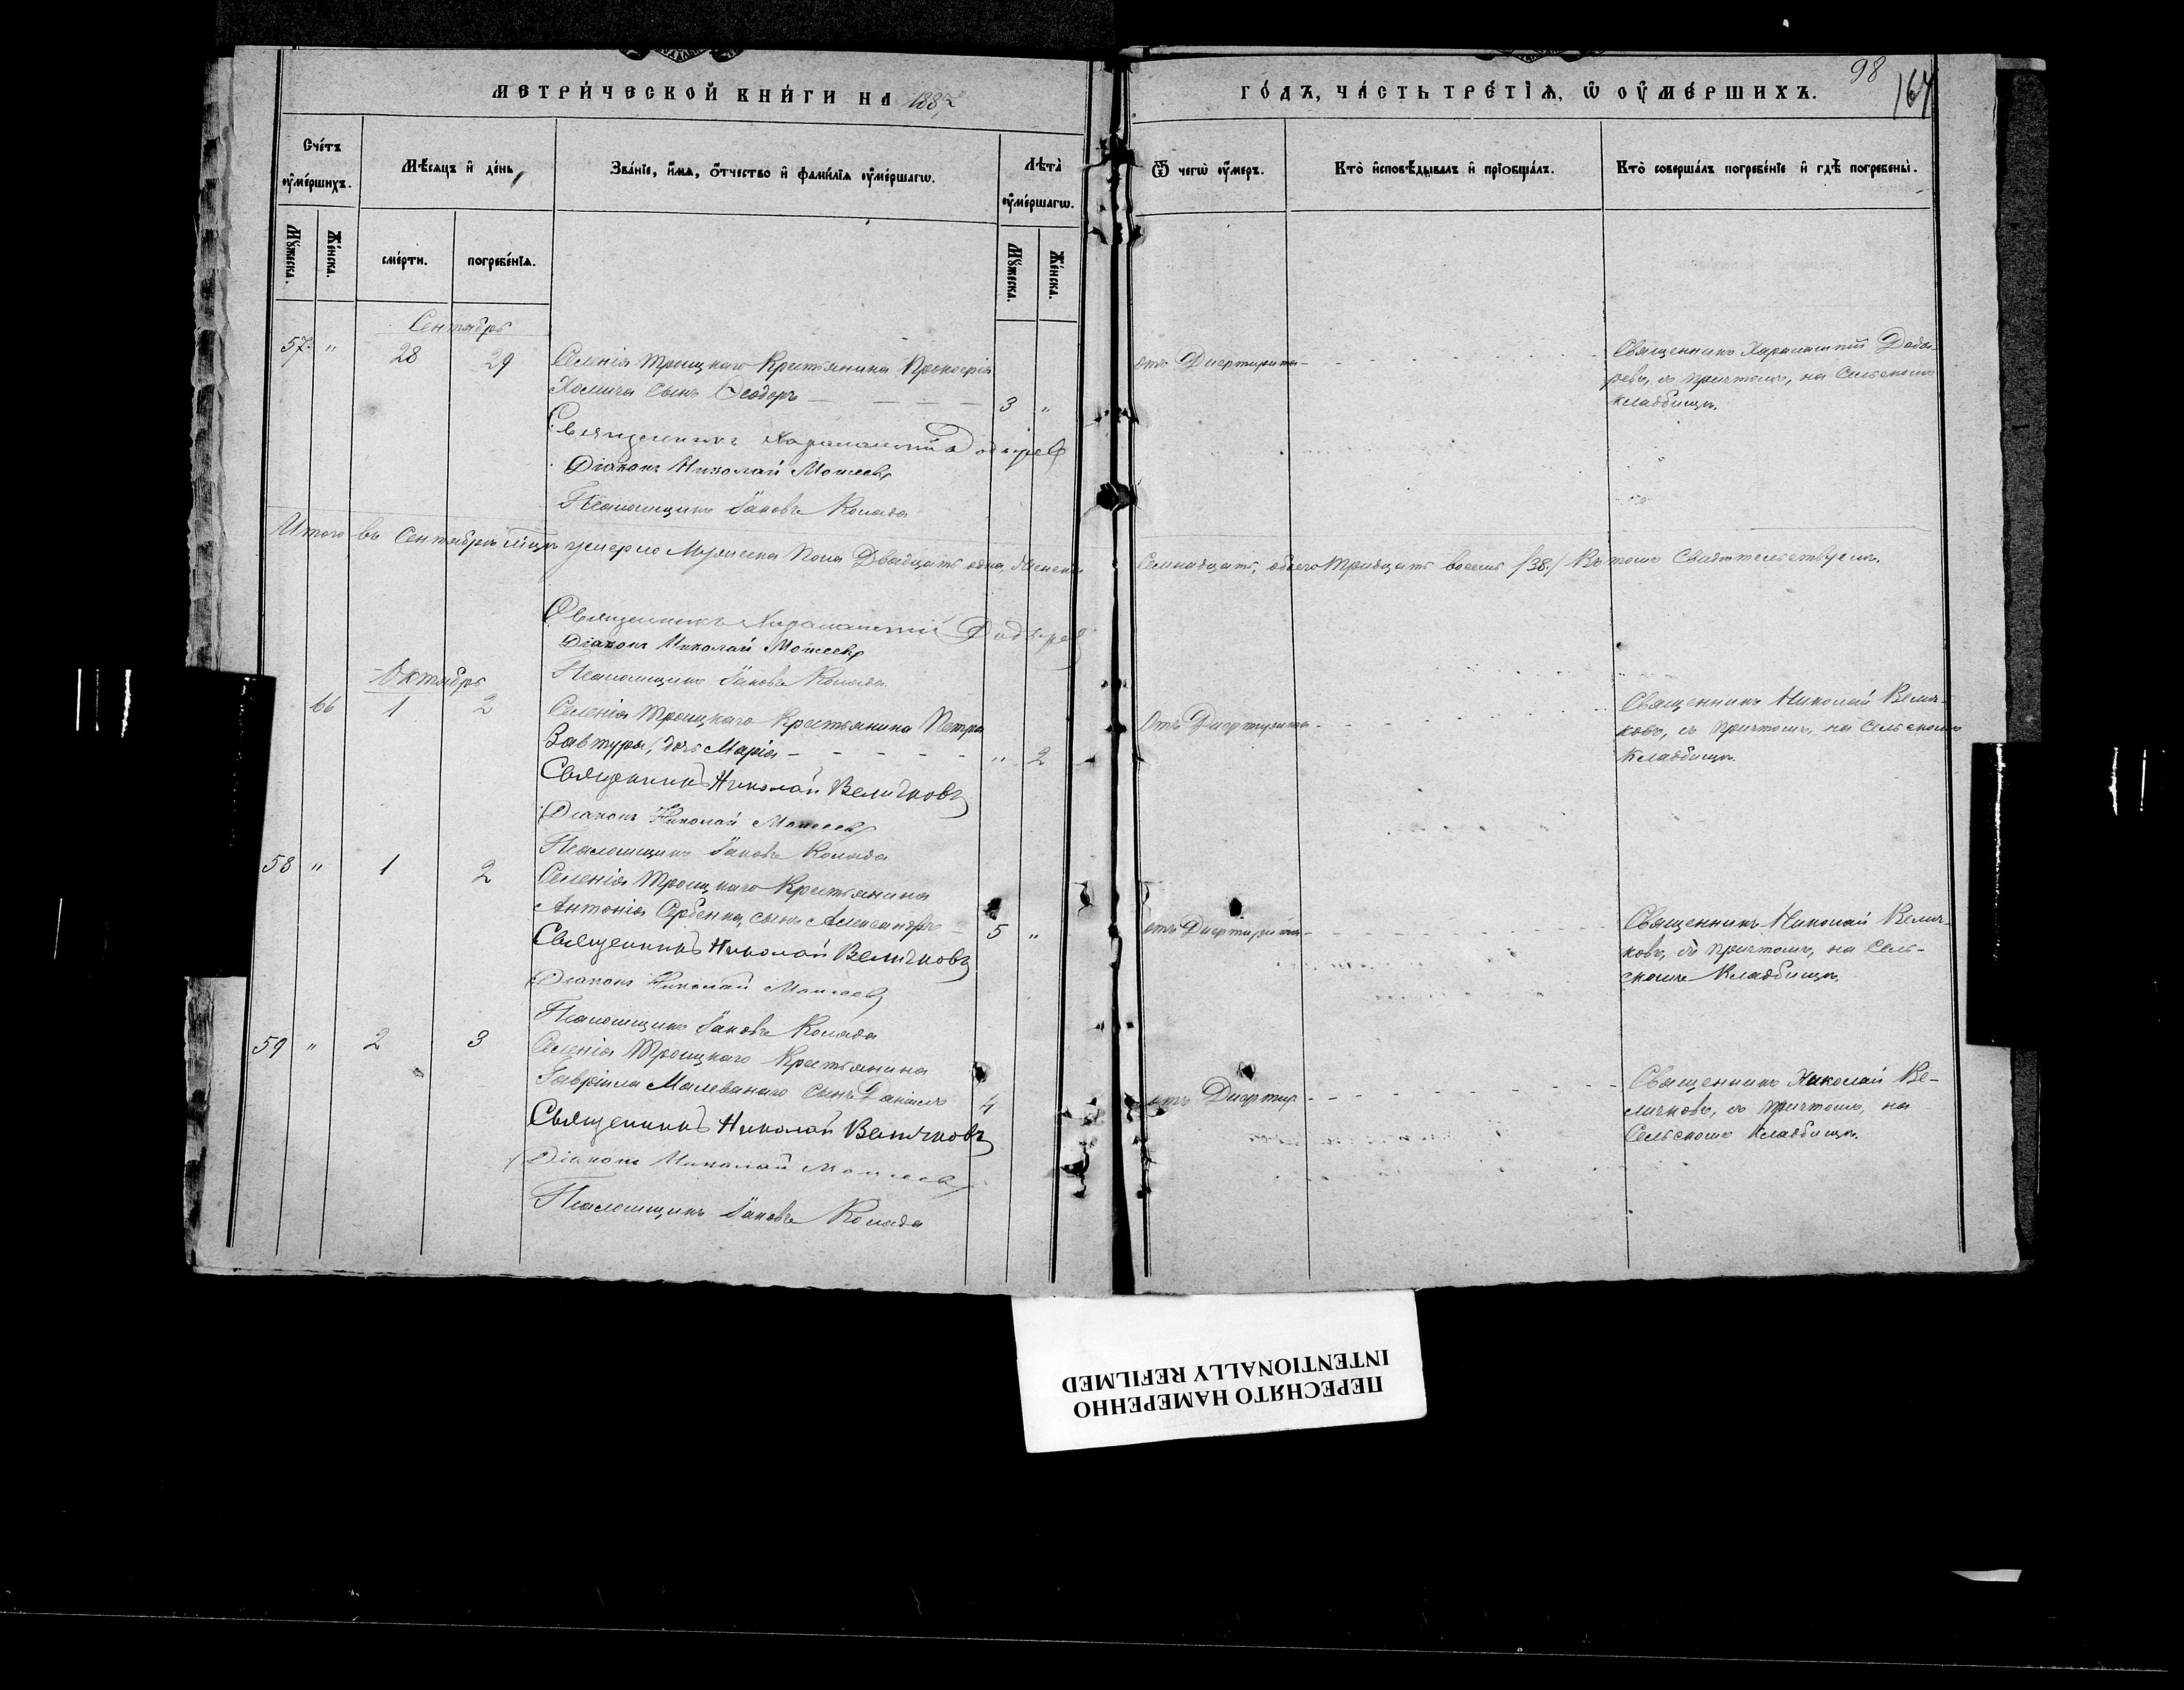 МЕТРИ́ЧЕСКОЙ КНИ́ГИ НА 1887
ГО́ДЪ, ЧА́СТЬ ТРЕ́ТЇѦ, Ѽ ОУ҆МЕ́РШИХЪ.
98
164
Сче́тъ оу҆ме́ршихъ.
Мѣ́сяцъ и҆ де́нь
Зва́нїе, и҆́мя, о҆́тчество и҆ фами́лїя оу҆ме́ршагѡ.
Лѣта̀ оу҆ме́ршагѡ.
Ѿ чегѡ̀ оу҆́меръ.
Кто̀ и҆сповѣ́дывалъ и҆ прїобща́лъ.
Кто̀ соверша́лъ погребе́нїе и҆ гдѣ̀ погребены̀.
Мꙋ́жеска.
Же́нска.
сме́рти.
погребе́нїя.
Мꙋ́жеска.
Же́нска.
Сентябрь
57. " 28 29 Селенія Троицкаго Крестьянина Прокофія
Сынъ Ѳеодоръ — 3 "
отъ Дифтерита
Священникъ Харалампій Дода-
ревъ, съ причтомъ, на Сельскомъ
кладбищѣ.
Священникъ Харалампій
Діаконъ Николай Моисеевъ
Псаломщикъ Іаковъ Коляда
Итого въ Сентябрѣ мѣцѣ умерло Мужеска Пола Двадцать одна, Женска Семнадцать, обоего Тридцать восемь /38./ Въ томъ Свидѣтельствуемъ.
Священникъ Харалампій
Діаконъ Николай Моисеевъ
Псаломщикъ Іаковъ Коляда
Октябрь
66 1 2 Селенія Троицкаго Крестьянина Петра
Завтуры, дочь Марія — " 2
Отъ Дифтерита
Священникъ Николай Велич-
ковъ, съ причтомъ, на Сельскомъ
Кладбищѣ.
Священникъ Николай Величковъ
Діаконъ Николай Моисеевъ
Псаломщикъ Іаковъ Коляда
58 " 1 2 Селенія Троицкаго Крестьянина
Антонія Сербенка, сынъ Александръ — 5 "
отъ Дифтерита
Священникъ Николай Велич-
ковъ, съ причтомъ, на Сель-
скомъ Кладбищѣ.
Священникъ Николай Величковъ
Діаконъ Николай Моисеевъ
Псаломщикъ Іаковъ Коляда
59 " 2 3 Селенія Троицкаго Крестьянина
Гавріила Малеванаго Сынъ Даніилъ 4
отъ Дифтер
Священникъ Николай Ве-
личковъ, съ причтомъ, на
Сельскомъ Кладбищѣ.
Священникъ Николай Величковъ
Діаконъ Николай Моисеевъ
Псаломщикъ Іаковъ Коляда
ПЕРЕСНЯТО НАМЕРЕННО
INTENTIONALLY REFILMED